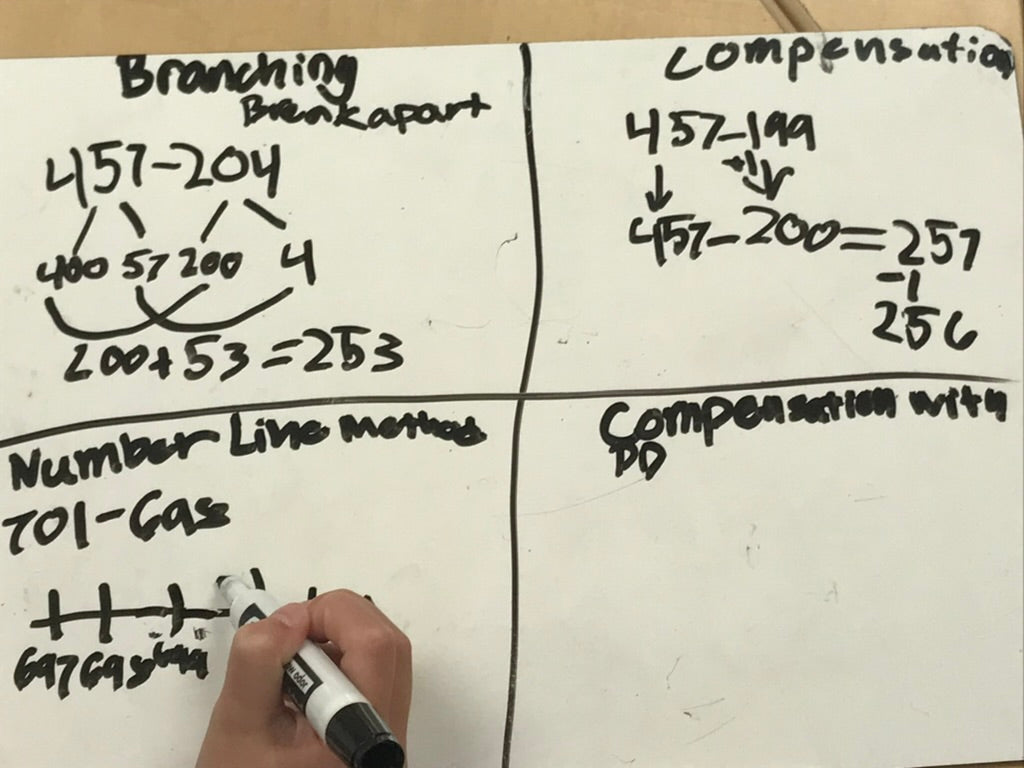 Branching
Breakapart
457-204
400 57 200 4
200+53=253
Compensation
457-199
+1
457-200=257
-1
256
Number Line Method
701-698
697 698 699
Compensation with
DD
odor